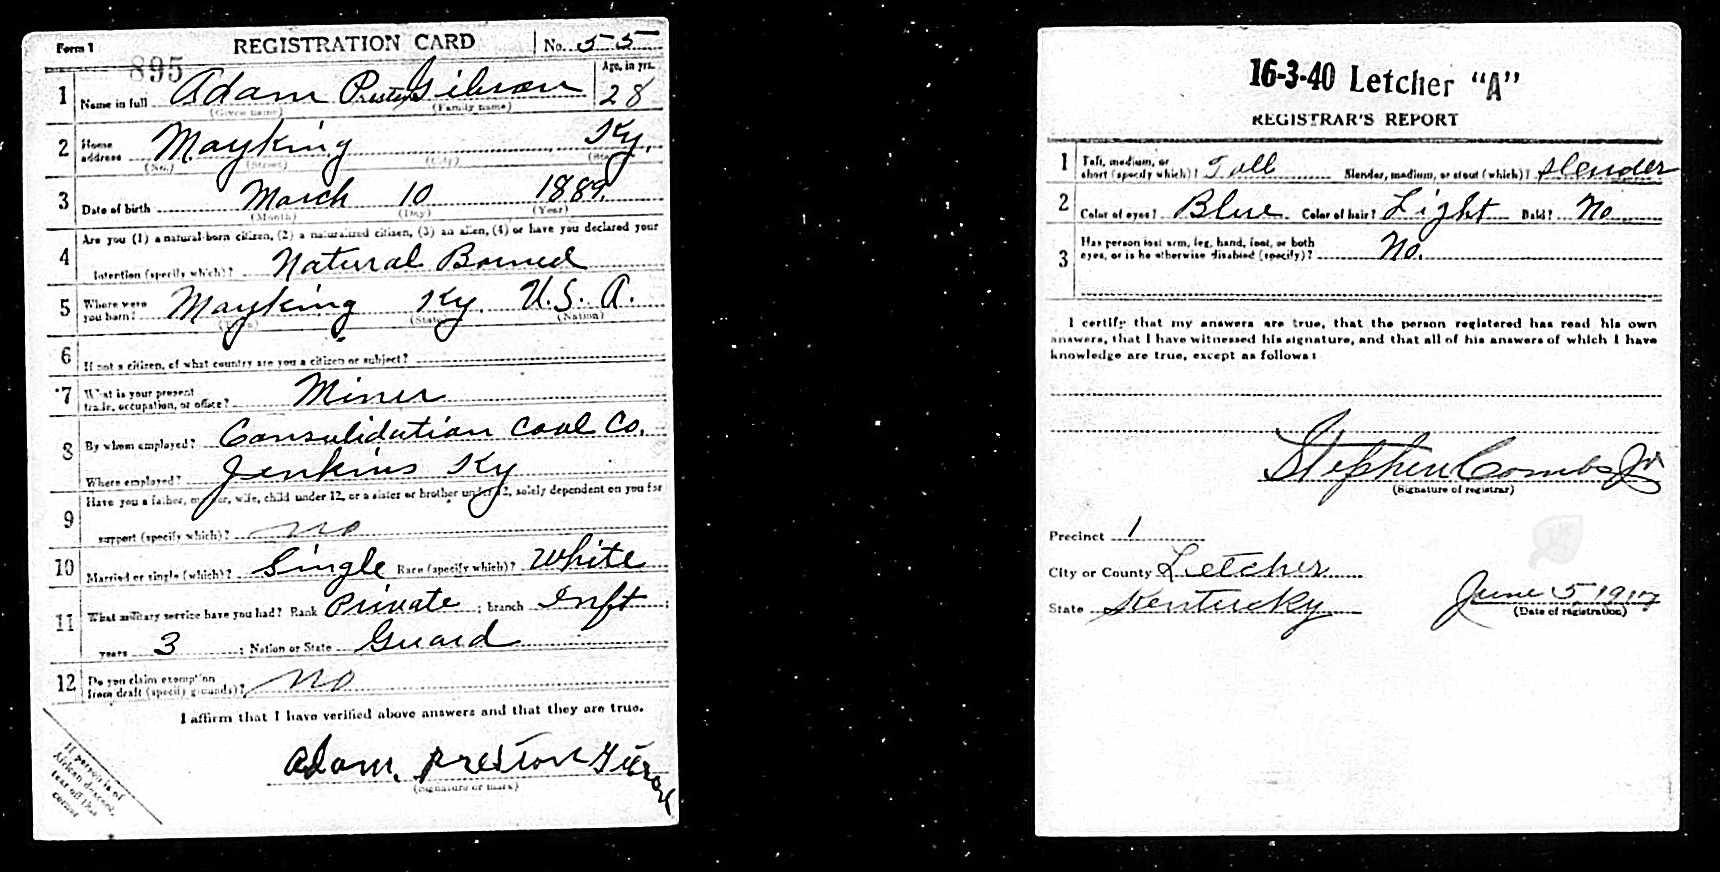 Form 1 REGISTRATION CARD No. 55
895
1 Name in full Adam Preston Gibson Age, in yrs. 28
(Given name) (Family name)
2 Home address Mayking Ky.
(No.) (Street) (City) (State)
3 Date of birth March 10 1889.
(Month) (Day) (Year)
4 Are you (1) a natural-born citizen, (2) a naturalized citizen, (3) an alien, (4) or have you declared your
intention (specify which)? Natural Borned
5 Where were you born? Mayking Ky. U.S.A.
(Town) (State) (Nation)
6 If not a citizen, of what country are you a citizen or subject?
7 What is your present trade, occupation, or office? Miner
8 By whom employed? Consolidation Coal Co.
Where employed? Jenkins Ky
9 Have you a father, mother, wife, child under 12, or a sister or brother under 12, solely dependent on you for
support (specify which)? no
10 Married or single (which)? Single Race (specify which)? White
11 What military service have you had? Rank Private ; branch Inft ;
years 3 ; Nation or State Guard
12 Do you claim exemption from draft (specify grounds)? no
I affirm that I have verified above answers and that they are true.
Adam. Preston Gibson
(Signature or mark)
If person is of
African descent,
tear off this
corner
16-3-40 Letcher "A"
REGISTRAR'S REPORT
1 Tall, medium, or short (specify which)? Tall Slender, medium, or stout (which)? slender
2 Color of eyes? Blue Color of hair? Light Bald? No
3 Has person lost arm, leg, hand, foot, or both
eyes, or is he otherwise disabled (specify)? No.
I certify that my answers are true, that the person registered has read his own
answers, that I have witnessed his signature, and that all of his answers of which I have
knowledge are true, except as follows:
Stephen Combs Jr
(Signature of registrar)
Precinct 1
City or County Letcher
State Kentucky June 5, 1917
(Date of registration)